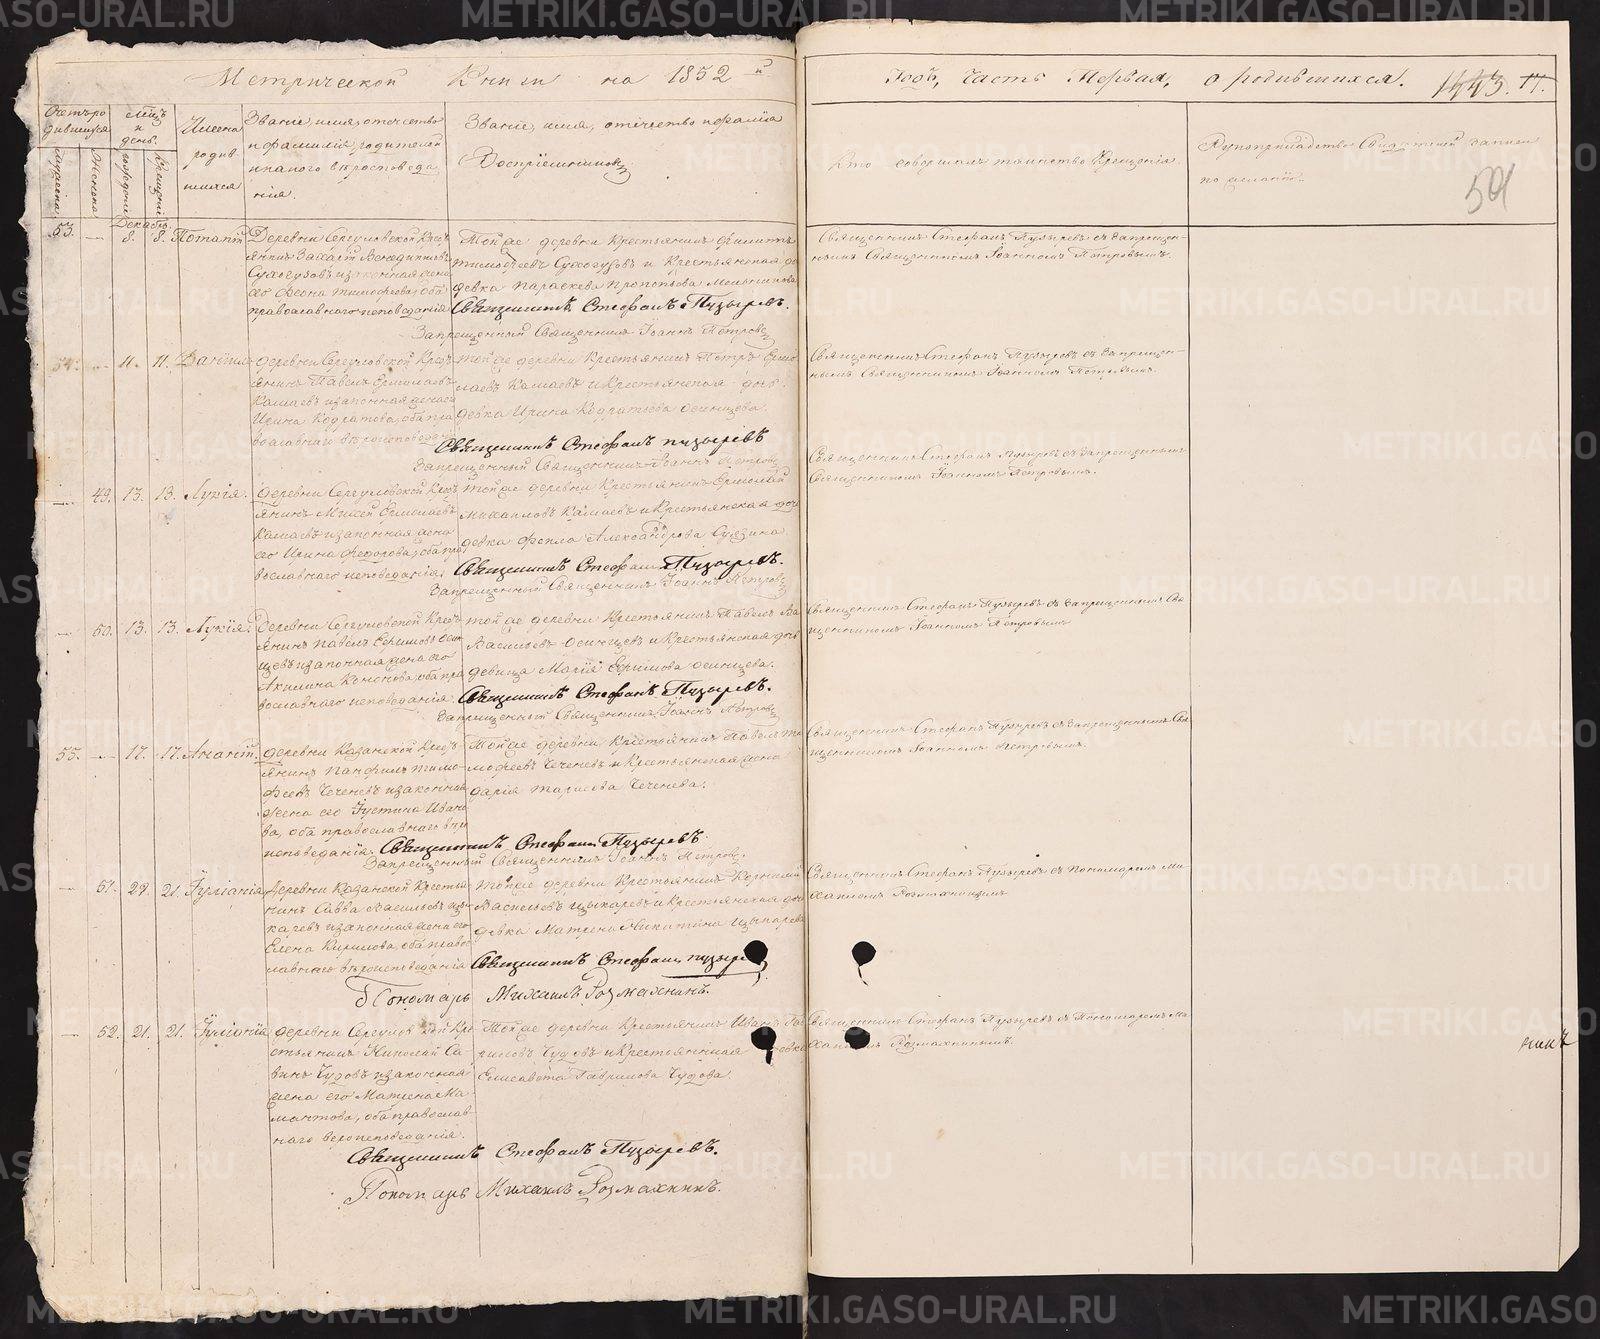 Метрической Книги на 1852й
годъ, Часть Первая, о родившихся.
1443. 17.
501
Счетъ родившихся
Мужеска
Женска
мѣсяцъ и день.
рожденія
Крещенія
Имена родившихся
Званіе, имя, отчество и фамилія родителей и какого вѣроисповеданія.
Званіе, имя, отчество и фамилія Воспріемниковъ
Кто совершалъ таинство Крещенія.
Рукоприкладство Свидѣтелей записи по желанію.
Декабрь
53. — 8. 8. Потапій
Деревни Сергуловской Крестьянинъ Захарій Венедиктовъ Сухогузовъ и законная жена его Феона Тимофеева, оба православнаго исповеданія
Той же деревни Крестьянинъ Филиппъ Тимофеевъ Сухогузовъ и Крестьянская девка Параскева Прокопьева Мельникова
Священникъ Стефанъ Пузыревъ.
Запрещенный Священникъ Іоаннъ Петровъ
Священникъ Стефанъ Пузыревъ съ запрещеннымъ Священникомъ Іоанномъ Петровымъ.
54. — 11. 11. Даніилъ
Деревни Сергуловской Крестьянинъ Павелъ Ермолаевъ Камаевъ и законная жена его Ирина Кодратова, оба православнаго вѣроисповеданія
Той же деревни Крестьянинъ Петръ Ермолаевъ Камаевъ и Крестьянская дочь девка Ирина Кодратьева Осинцева.
Священникъ Стефанъ Пузыревъ
Запрещенный Священникъ Іоаннъ Петровъ
Священникъ Стефанъ Пузыревъ съ запрещеннымъ Священникомъ Іоанномъ Петровымъ.
— 49. 13. 13. Лукія.
Деревни Сергуловской Крестьянинъ Ермолаевъ Камаевъ и законная жена его Ирина Федорова, оба православнаго исповеданія
Той же деревни Крестьянинъ Ермолай Михаиловъ Камаевъ и Крестьянская дочь девка Фекла Александрова
Священникъ Стефанъ Пузыревъ.
Запрещенный Священникъ Іоаннъ Петровъ
Священникъ Стефанъ Пузыревъ съ запрещеннымъ Священникомъ Іоанномъ Петровымъ.
— 50. 13. 13. Лукія.
Деревни Сергуловской Крестьянинъ Павелъ Ефимовъ Осинцевъ и законная жена его Акилина Кононова, оба православнаго исповеданія.
Той же деревни Крестьянинъ Павелъ Ва Васильевъ Осинцевъ и Крестьянская дочь девица Марія Ефимова Осинцева.
Священникъ Стефанъ Пузыревъ.
Запрещенный Священникъ Іоаннъ Петровъ
Священникъ Стефанъ Пузыревъ съ запрещеннымъ Священникомъ Іоанномъ Петровымъ
55. — 17. 17. Ананій.
Деревни Казанской Крестьянинъ Панфилъ Тимофеевъ Чеченевъ и законная жена его Іустина Иванова, оба православнаго вѣроисповеданія.
Той же деревни Крестьянинъ Павелъ Тимофеевъ Чеченевъ и Крестьянская жена Дарія Тарасова Чеченева.
Священникъ Стефанъ Пузыревъ.
Запрещенный Священникъ Іоаннъ Петровъ.
Священникъ Стефанъ Пузыревъ съ запрещеннымъ Священникомъ Іоанномъ Петровымъ.
— 51. 21. 21. Іуліанія
Деревни Казанской Крестьянинъ Савва Васильевъ Цыкаревъ и законная жена его Елена Кирилова, оба православнаго вѣроисповеданія
Той же деревни Крестьянинъ Корнилій Васильевъ Цыкаревъ и Крестьянская дочь девка Матрена Никитина Цыкарева
Священникъ Стефанъ Пузыревъ
Пономарь Михаилъ Розмахнинъ.
Священникъ Стефанъ Пузыревъ съ Пономаремъ Михаиломъ Розмахнинымъ
— 52. 21. 21. Іуліанія
Деревни Сергуловской Крестьянинъ Николай Савинъ Чудовъ и законная жена его Матрена Мамонтова, оба православнаго вероисповеданія.
Той же деревни Крестьянинъ Иванъ Борисовъ Чудовъ и Крестьянская девка Елисавета Гаврилова Чудова
Священникъ Стефанъ Пузыревъ.
Пономарь Михаилъ Розмахнинъ.
Священникъ Стефанъ Пузыревъ съ Пономаремъ Михаиломъ Розмахнинымъ.
METRIKI.GASO-URAL.RU